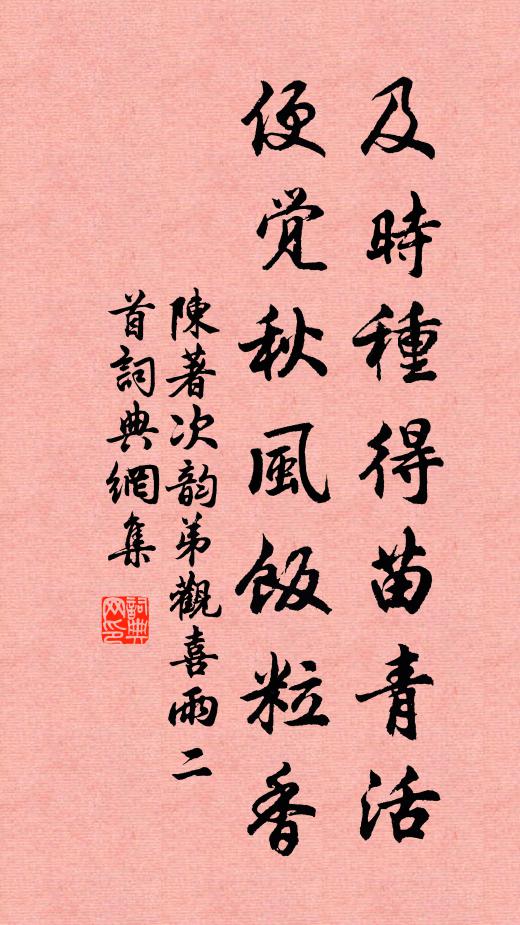 及時種得苗青活
便覺秋風飯粒香
陳著次韵弟觀喜雨二
首詞典網集
詞典
网印